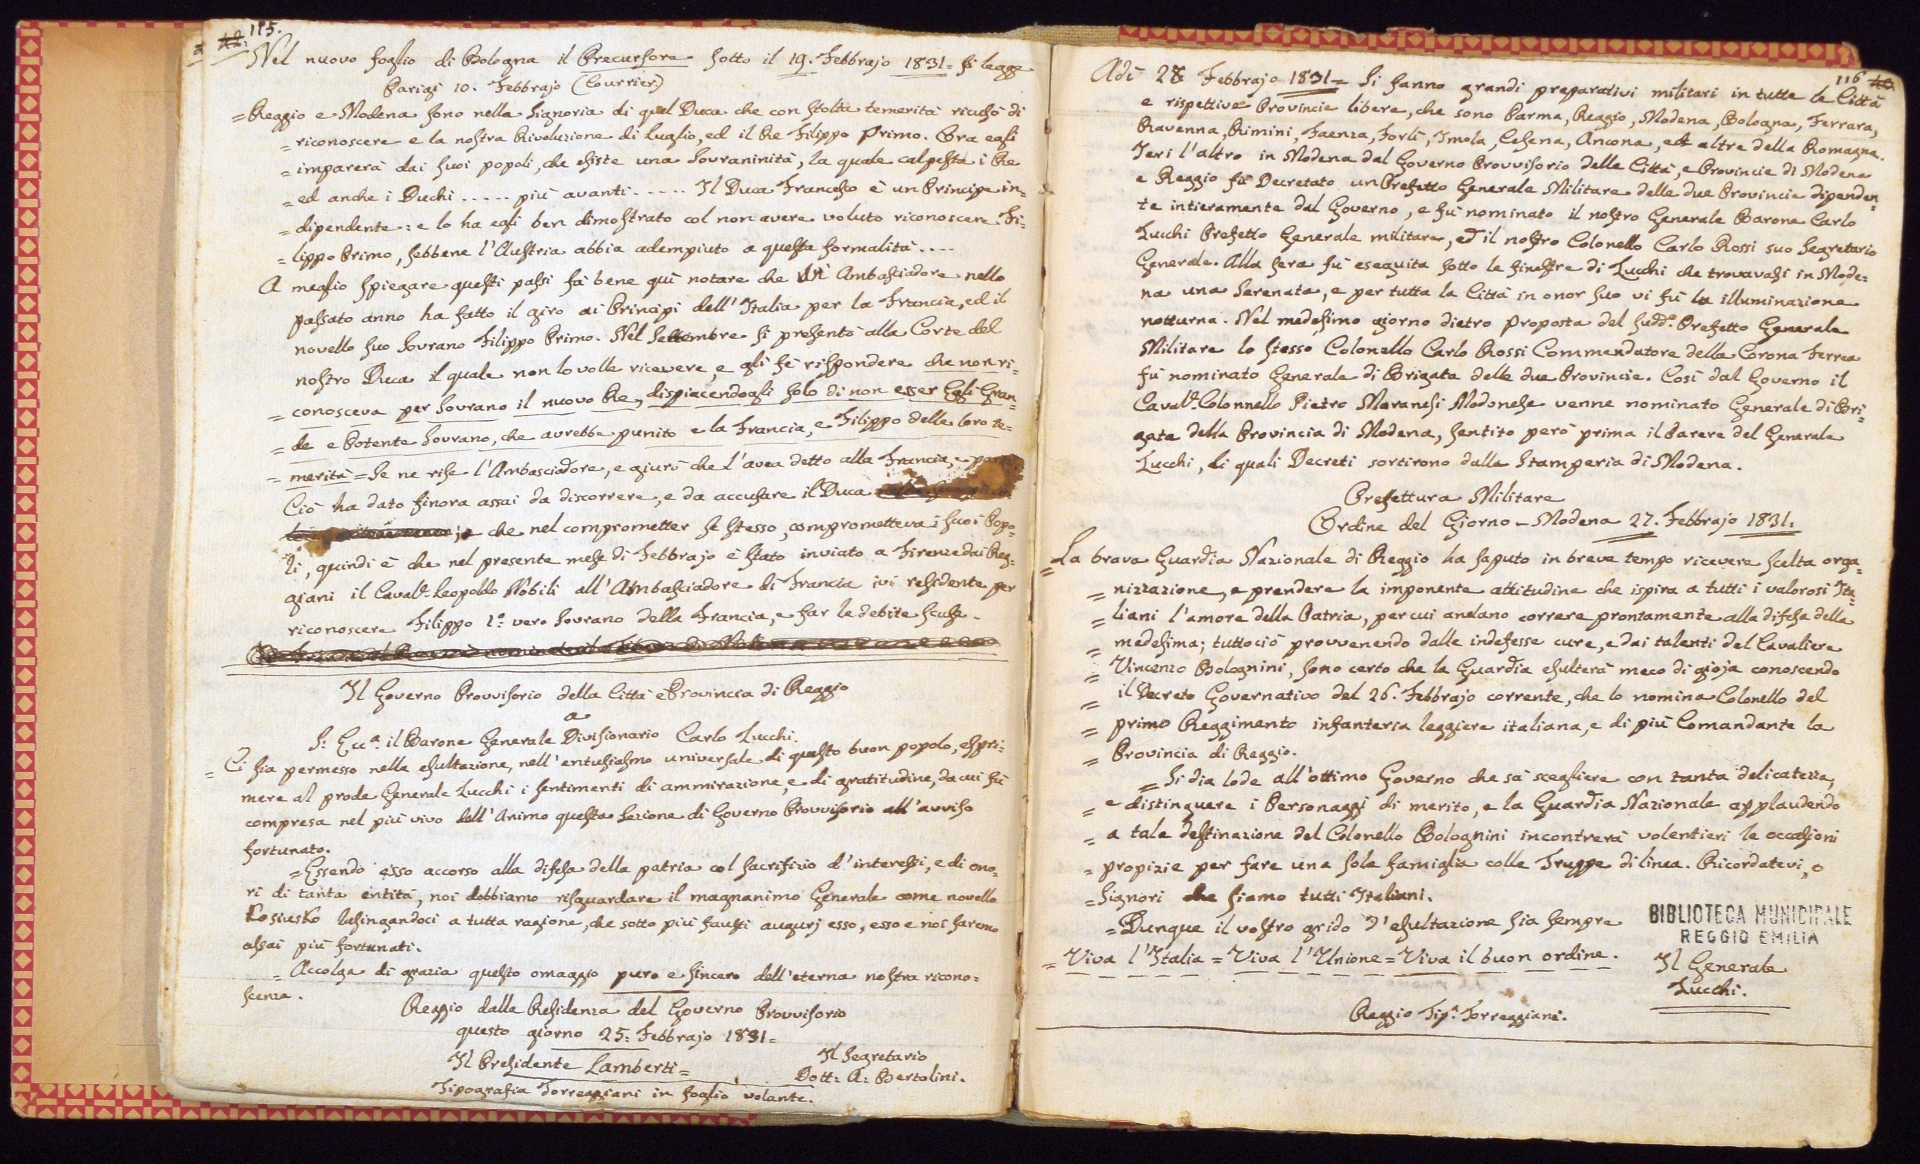 115.
Nel nuovo foglio di Bologna il Precursore sotto il 19. Febbrajo 1831= si legge
Parigi 10. Febbrajo (Courrier)
=Reggio e Modena sono nella Signoria di quel Duca che con stolta temerità ricusò di
=riconoscere e la nostra Rivoluzione di Luglio, ed il Re Filippo Primo. Ora egli
=imparerà dai suoi popoli, che esiste una Sovraninità, la quale calpesta i Re
=ed anche i Duchi ..... più avanti ..... Il Duca Francesco è un Principe in=
=dipendente: e lo ha egli ben dimostrato col non avere voluto riconoscere Fi=
=lippo Primo, sebbene l'Austria abbia adempiuto a questa formalità ....
A meglio spiegare questi passi fa bene quì notare che un Ambasciadore nello
passato anno ha fatto il giro ai Principi dell'Italia per la Francia, ed il
novello suo Sovrano Filippo Primo. Nel Settembre si presentò alla Corte del
nostro Duca il quale non lo volle ricevere, e gli fè rispondere che non ri=
=conosceva per Sovrano il nuovo Re, dispiacendogli solo di non esser Egli Gran=
=de e Potente Sovrano, che avrebbe punito e la Francia, e Filippo delle loro te=
=merità= Se ne rise l'Ambasciadore, e giurò che l'avea detto alla Francia, e
Ciò ha dato finora assai da discorrere, e da accusare il Duca
che nel comprometter se stesso, comprometteva i suoi Popo=
li, quindi è che nel presente mese di Febbrajo è stato inviato a Firenze dai Reg=
giani il Caval.e Leopoldo Nobili all'Ambasciadore di Francia ivi residente per
riconoscere Filippo 1.o vero Sovrano della Francia, e far le debite scuse.
Il Governo Provvisorio della Città e Provincia di Reggio
a
S: Ecc.a il Barone Generale Divisionario Carlo Zucchi.
=Ci sia permesso nella esultazione, nell'entusiasmo universale di questo buon popolo, espri=
mere al prode Generale Zucchi i sentimenti di ammirazione, e di gratitudine, da cui fù
compresa nel più vivo dell'Animo questa Sezione di Governo Provvisorio all'avviso
fortunato.
=Essendo esso accorso alla difesa della patria col sacrifizio d'interessi, e di ono=
ri di tanta entità, noi dobbiamo risguardare il magnanimo Generale come novello
Kosiusko lusingandoci a tutta ragione, che sotto più fausti augurj esso, esso e noi saremo
assai più fortunati.
=Accolga di grazia questo omaggio puro e sincero dell'eterna nostra ricono=
scenza.
Reggio dalla Residenza del Governo Provvisorio
questo giorno 25: Febbrajo 1831=
Il Presidente Lamberti=
Il Segretario
Dott: A: Bertolini.
Tipografia Torreggiani in foglio volante.
116
Adì 28 Febbrajo 1831= Si fanno grandi preparativi militari in tutte le Città
e rispettive Provincie libere, che sono Parma, Reggio, Modena, Bologna, Ferrara,
Ravenna, Rimini, Faenza, Forlì, Imola, Cesena, Ancona, ed altre della Romagna.
Jeri l'altro in Modena dal Governo Provvisorio delle Città, e Provincie di Modena
e Reggio fù Decretato un Prefetto Generale Militare delle due Provincie dipenden=
te intieramente dal Governo, e fù nominato il nostro Generale Barone Carlo
Zucchi Prefetto Generale militare, ed il nostro Colonello Carlo Rossi suo Segretario
Generale. Alla sera fù eseguita sotto le finestre di Zucchi che trovavasi in Mode=
na una Serenata, e per tutta la Città in onor suo vi fù la illuminazione
notturna. Nel medesimo giorno dietro Proposta del sudd.o Prefetto Generale
Militare lo stesso Colonello Carlo Rossi Commendatore della Corona Ferrea
fù nominato Generale di Brigata delle due Provincie. Così dal Governo il
Caval.e Colonnello Pietro Maranesi Modonese venne nominato Generale di Bri=
gata della Provincia di Modena, sentito però prima il Parere del Generale
Zucchi, li quali Decreti sortirono dalla Stamperia di Modena.
Prefettura Militare
Ordine del Giorno - Modena 27. Febbrajo 1831:
=La brava Guardia Nazionale di Reggio ha saputo in breve tempo ricevere scelta orga=
=nizzazione, e prendere la imponente attitudine che ispira a tutti i valorosi Ita=
=liani l'amore della Patria, per cui anelano correre prontamente alla difesa della
=medesima; tuttociò provvenendo dalle indefesse cure, e dai talenti del Cavaliere
=Vincenzo Bolognini, sono certo che la Guardia esulterà meco di gioja conoscendo
=il Decreto Governativo del 26. Febbrajo corrente, che lo nomina Colonello del
=primo Reggimento infanteria leggiere italiana, e di più Comandante la
=Provincia di Reggio.
=Si dia lode all'ottimo Governo che sa scegliere con tanta delicatezza,
=e distinguere i Personaggi di merito, e la Guardia Nazionale applaudendo
=a tale destinazione del Colonello Bolognini incontrerà volentieri le occasioni
=propizie per fare una sola famiglia colle Truppe di linea. Ricordatevi, o
=Signori che siamo tutti Italiani.
=Dunque il vostro grido d'esultazione sia sempre
=Viva l'Italia = Viva l'Unione = Viva il buon ordine.
BIBLIOTECA MUNICIPALE
REGGIO EMILIA
Il Generale
Zucchi.
Reggio Tip.a Torreggiani.